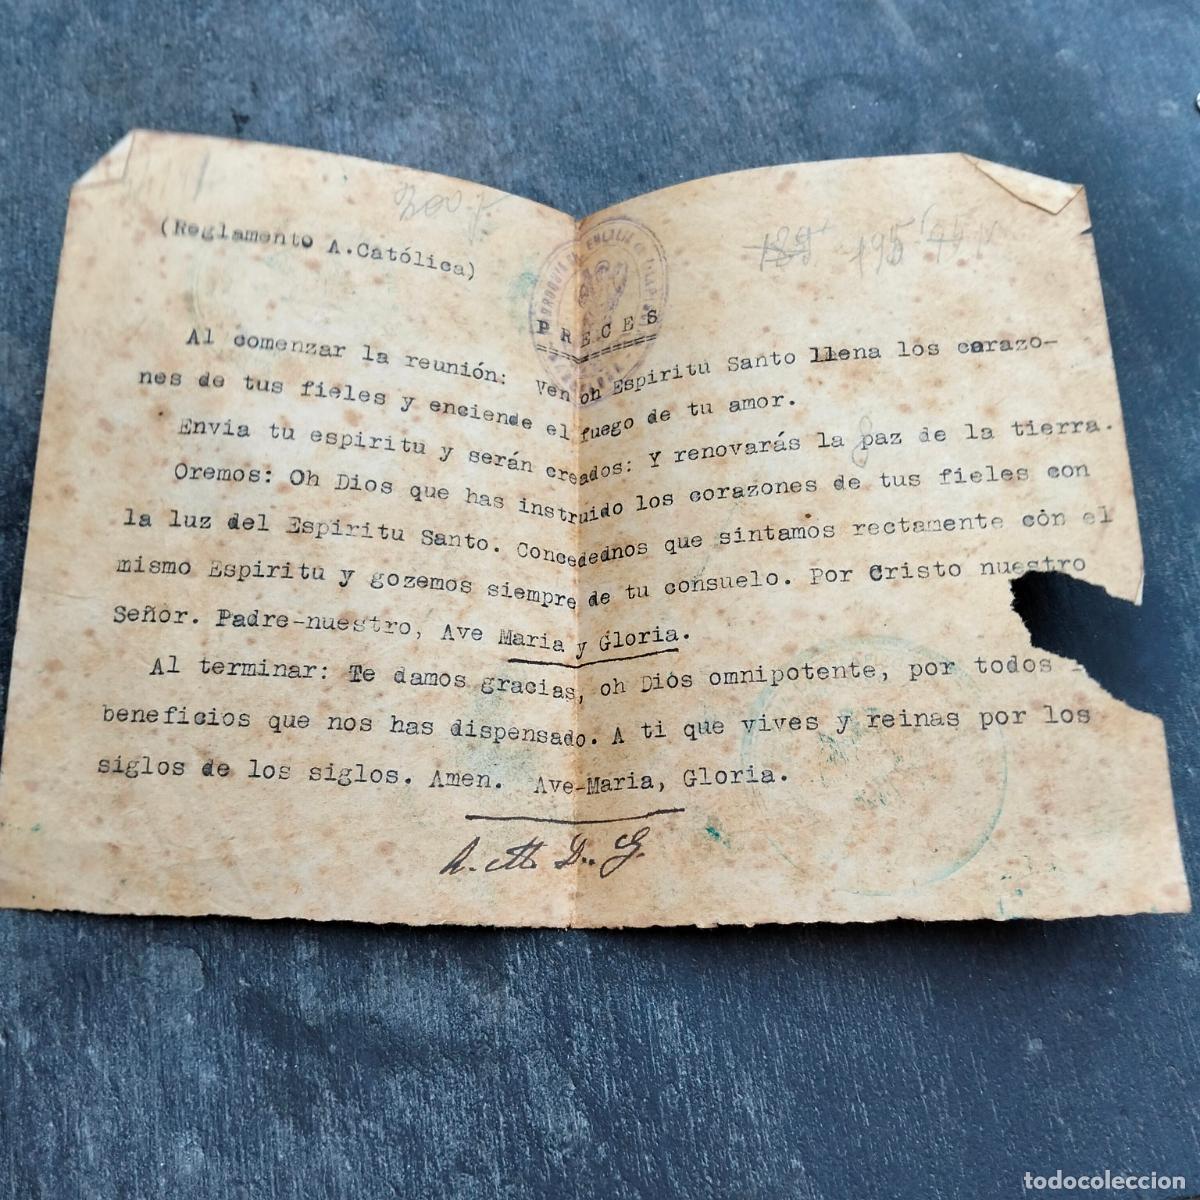 (Reglamento A.Católica)
PRECES
Al comenzar la reunión: Ven oh Espiritu Santo llena los corazo-
nes de tus fieles y enciende el fuego de tu amor.
Envia tu espiritu y serán creados: Y renovarás la paz de la tierra.
Oremos: Oh Dios que has instruido los corazones de tus fieles con
la luz del Espiritu Santo. Concedednos que sintamos rectamente con el
mismo Espiritu y gozemos siempre de tu consuelo. Por Cristo nuestro
Señor. Padre-nuestro, Ave Maria y Gloria.
Al terminar: Te damos gracias, oh Dios omnipotente, por todos
beneficios que nos has dispensado. A ti que vives y reinas por los
siglos de los siglos. Amen. Ave-Maria, Gloria.
A. M. D. G.
todocoleccion